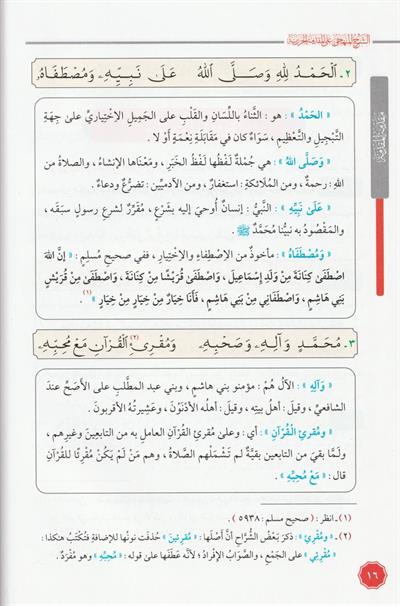 الشرح المنهجي على المقدمة الجزرية
مقدمة المقدمة
٢ـ اَلْحَمْدُ لِلّٰهِ وَصَلَّى اللهُ عَلَى نَبِيِّهِ وَمُصْطَفَاهُ
« الحَمْدُ » : هو : الثَّناءُ باللِّسَانِ والقَلْبِ على الجَمِيلِ الاِخْتِيارِيِّ على جِهَةِ
التَّبْجِيلِ والتَّعْظِيمِ ، سَوَاءٌ كان في مقابَلَةِ نِعْمَةٍ أَوْ لا .
« وَصَلَّى اللهُ » : هي جُمْلةٌ لَفْظُها لَفْظُ الخَبَرِ ، ومَعْنَاها الإنشاءُ ، والصلاةُ من
اللهِ : رحمةٌ ، ومن المُلائكةِ : استغفارٌ ، ومن الآدميِّين : تضرُّعٌ ودعاءٌ .
« عَلَى نَبِيِّهِ » : النَّبِيُّ : إنسانٌ أُوحيَ إليه بشَرْعٍ ، مُقرِّرٌ لشرعِ رسولٍ سبَقَه ،
والمَقْصُودُ به نبيُّنا مُحَمَّدٌ ﷺ .
« وَمُصْطَفَاهُ » : مأخوذٌ من الاِصْطِفاءِ والاِختِيارِ ، ففي صحيحِ مسلِمٍ : « إنَّ اللهَ
اصْطَفَى كِنَانَةَ مِنْ وَلَدِ إِسْمَاعِيلَ ، وَاصْطَفَى قُرَيْشًا مِنْ كِنَانَةَ ، وَاصْطَفَى مِنْ قُرَيْشٍ
بَنِي هَاشِمٍ ، وَاصْطَفَانِي مِنْ بَنِي هَاشِمٍ ، فَأَنَا خِيَارٌ مِنْ خِيَارٍ مِنْ خِيَارٍ » .(١)
٣ـ مُحَمَّدٍ وَآلِهِ وَصَحْبِهِ وَمُقْرِئِ(٢) الْقُرْآنِ مَعْ مُحِبِّهِ
« وَآلِهِ » : الآلُ هُمْ : مؤمنو بني هاشمٍ ، وبني عبد المطَّلبِ على الأَصَحِّ عندَ
الشافعيِّ ، وقيلَ : أهلُ بيتِه ، وقيلَ : أهلُه الأَدْنَوْنَ ، وعَشِيرتُه الأقربونَ .
« ومُقرِئِ الْقُرْآنِ » : أي : وعلى مُقرِئِ القُرآنِ العاملِ به من التابعينَ وغيرِهم ،
ولَمَّا بقيَ من التابعين بقيَّةٌ لم تَشْمَلْهم الصَّلاةُ ، وهم مَنْ لَمْ يَكُنْ مُقْرِئًا للقُرآنِ
قال : « مَعْ مُحِبِّهِ » .
(١)ـ انظر : ( صحيح مسلم : ٥٩٣٨ ) .
(٢)ـ « ومُقْرِئِ » : ذكرَ بَعْضُ الشُّرَّاحِ أنَّ أَصْلَها : « مقرِئينَ » حُذفت نونُها للإضافةِ فتُكْتَبُ هكذا :
« مُقْرِئِي » على الجَمْعِ ، والصَّوابُ الإفرادُ ؛ لأنَّه عَطَفَها على قوله : « مُحِبِّهِ » وهو مُفْرَدٌ .
١٦